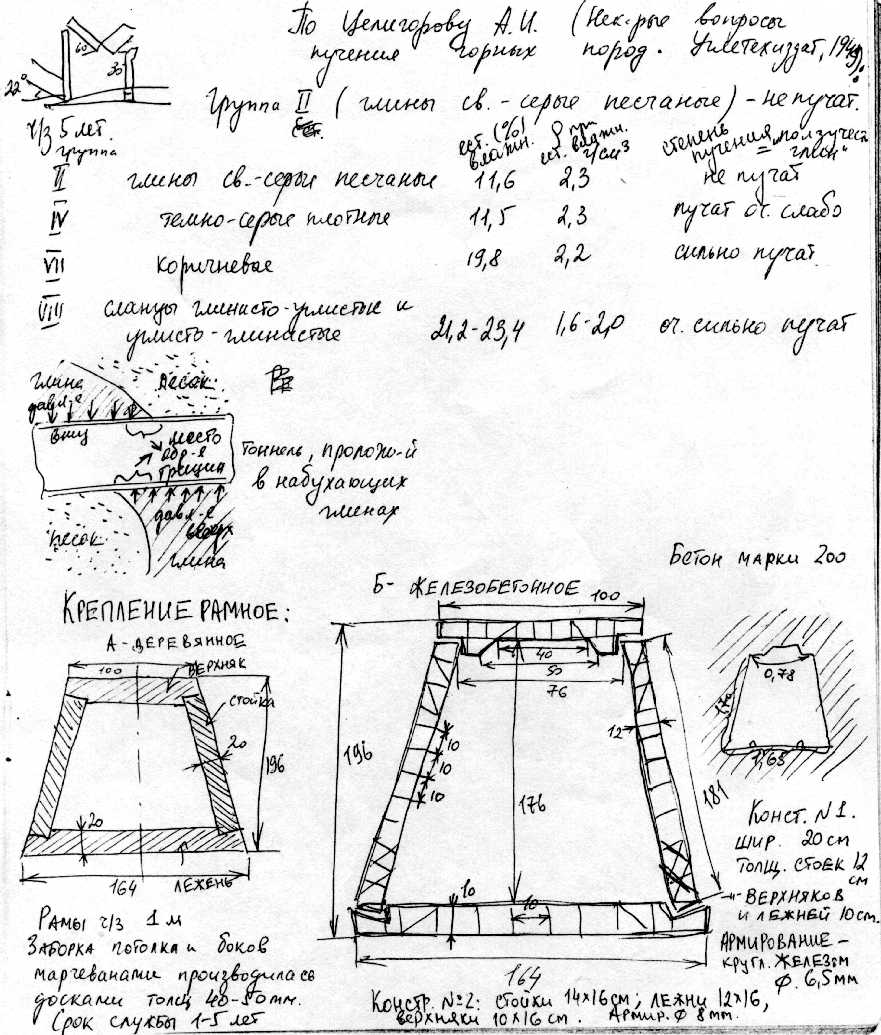 По Целигорову А.И. (Нек-рые вопросы
пучения горных пород. Углетехиздат, 194
22°
60
30
Группа II (глины св.-серые песчаные) - не пучат.
ч/з 5 лет.
группа
ест. (%) влажн.
ρ при ест. влажн. г/см³
степень пучения = "ползучесть глин"
II глины св.-серые песчаные 11,6 2,3 не пучат
IV темно-серые плотные 11,5 2,3 пучат оч. слабо
VII коричневые 19,8 2,2 сильно пучат
VIII сланцы глинисто-углистые и
углисто-глинистые 21,2-23,4 1,6-2,0 оч. сильно пучат
глина
давл-е
вниз
песок
место
обр-я
трещин
Тоннель, пролож-й
в набухающих
глинах
давл-е
вверх
песок
глина
Бетон марки 200
КРЕПЛЕНИЕ РАМНОЕ:
А - ДЕРЕВЯННОЕ
100
ВЕРХНЯК
СТОЙКА
20
196
20
164
ЛЕЖЕНЬ
Б - ЖЕЛЕЗОБЕТОННОЕ
100
40
50
76
196
10
10
10
12
176
181
10
10
164
0,78
1,70
1,65
Рамы ч/з 1 м
Заборка потолка и боков
марчеванами производилась
досками толщ 40-50 мм.
Срок службы 1-5 лет
Конст. N1.
шир. 20 см
толщ. стоек 12 см
-"- ВЕРХНЯКОВ
И ЛЕЖНЕЙ 10 см.
АРМИРОВАНИЕ -
кругл. ЖЕЛЕЗОМ
Ф. 6,5 мм
Констр. №2: стойки 14х16 см; лежни 12х16,
верхняки 10х16 см. Армир. Ф 8 мм.